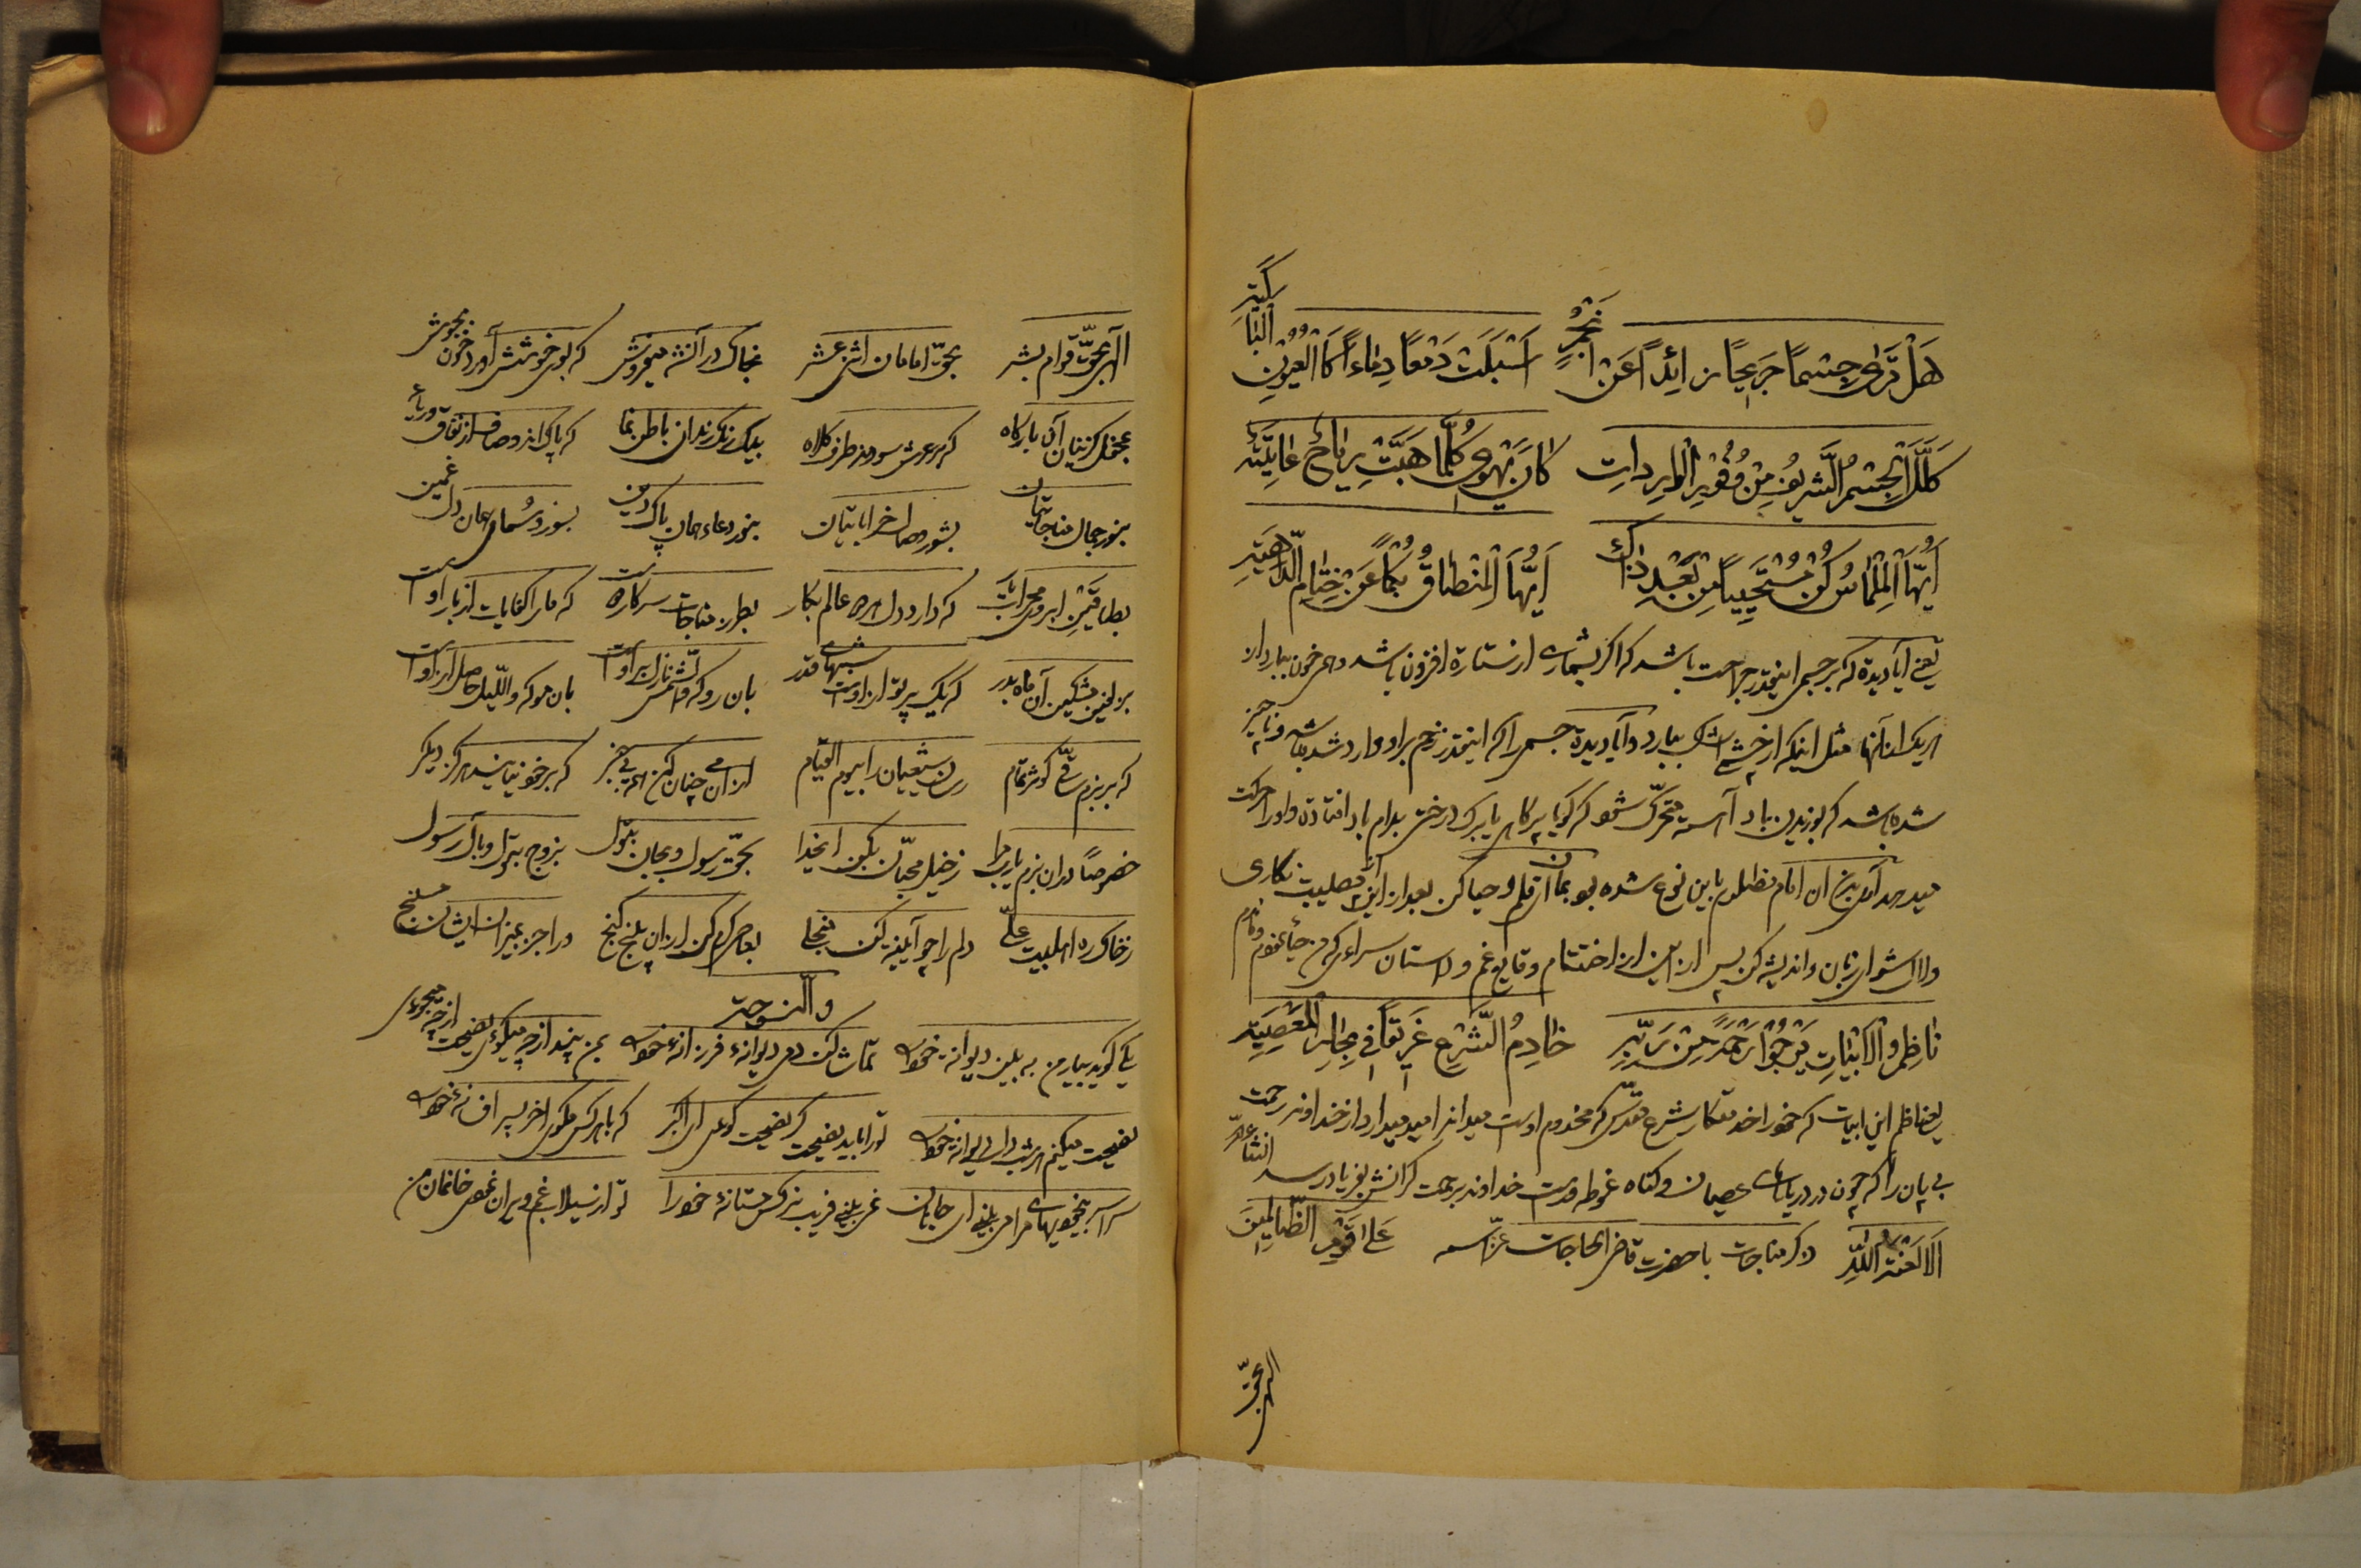 هَلْ تَرَىٰ جِسْمًا جَرِيحًا زائِدًا عَنْ أَنْجُمٍ اَسْبَلَتْ دَمْعًا دِماءً كَالْعُيُونِ الْبَاكِيَةِ
كَلَّلَ الْجِسْمُ الشَّرِيفُ مِنْ وُفُورِ الْوارِداتِ كَانَ يَهْوِي كُلَّمَا هَبَّتْ رِيَاحٌ عَاتِيَةٌ
اَيُّهَا الْمِلْمَاسُ كُنْ مُسْتَحْيِيًا مِنْ بَعْدِ ذاكَ اَيُّهَا الْمِنْطَاقُ بُكْمًا عَنْ خِتَامِ الدَّاهِيَةِ
یعنی آیا دیده که بر جسمی اینقدر جراحت باشد که اگر بشماری از ستاره افزون باشد و همی خون ببارد از
هر یک از آنها مثل اینکه از چشم اشک ببارد و آیا دیده جسمی را که اینقدر زخم بر او وارد شده باشد و ناچیز
شده باشد که بوزیدن باد آهسته متحرک شود که گویا پر کاهی یا برک درختی بدام باد افتاده و او را حرکت
میدهد آری بدن آن امام مظلوم باین نوع شده بود بمان ای قلم و حیا کن بعد از این از مصیبت نگاری
و لال شو ای زبان و اندیشه کن پس از این از اختتام وقایع غم و داستان سرائی که من حیا نمودم و نادم
نَاظِمُ الْاَبْيَاتِ يَرْجُوا رَحْمَةً مِنْ رَبِّهِ خَادِمُ الشَّرْعِ غَرِيقًا فِي بِحَارِ الْمَعْصِيَةِ
یعنی ناظم این ابیات که خود را خدمتکار شرع مقدس که مخدوم اوست میداند امید میدارد از خداوند رحمت
بی پایان را که چون در دریاهای عصیان و گناه غوطه ور است خداوند برحمت گرانش بفریاد رسد انشاءالله
اَلَا لَعْنَةُ اللهِ عَلَى الْقَوْمِ الظَّالِمِينَ ذکر مناجات با حضرت قاضی الحاجات عزّ اسمه
الهی بحق
الهی بحقّ قوام بشر بحقّ امامان اثنی عشر بخاک در آنشه میفروش که بوی خوشش آورد خون بجوش
بمحفل نشینان آن بارگاه که بر عرش سودند طرف کلاه بیک رنگ رندان باطن نما که پاک اند و صاف از نفاق و ریاء
بنور جمال مناجاتیان بشور وصال خراباتیان بنور دعاء همان پاک دین بسوز دل غمین
بطاق ابروی محرابیت که دارد دل اهل عالم بکار بطرز مناجات سرکار دوست که ما را کفایات از یار اوست
بزلفین مشکین آن ماه بدر که یک پرتو از اوست شبهای قدر بان رو که والشمس نازل بر اوست بان مو که واللیل حاصل از اوست
که بر بزم ساقی کوثر تمام رسان شیعیان را بیوم القیام از آن می چنان کن مرا بی خبر که بر خود نیایند هرگز دیگر
خصوصًا در آن بزم یا رب مرا ز خیل محبّان بکن ای خدا بحقّ رسول و بجان بتول بزوج بتول و بآل رسول
ز خاک ره اهلبیت علی دلم را چو آیینه کن منجلی بعاصی کرم کن از آن پنج گنج و را جز بمیزان ایشان مسنج
وله النوحة
یکی گوید بیا بر من به بین دیوانهٔ خود را تماشا کن دمی دیوانهٔ فرزانهٔ خود را بمن پند از چه میگوئی نصیحت از چه میجوئی
نصیحت میکنم هر شب دل دیوانهٔ خود را تو را باید نصیحت گر نصیحت گو علی اکبر که با هر کس مگوی آخر پسر افسانهٔ خود را
سراسر بیخودیهای مرا می بینی ای جانان نمی بینی فریب نرگس مستانهٔ خود را تو از سیلاب غم ویران نمودی خانمان من